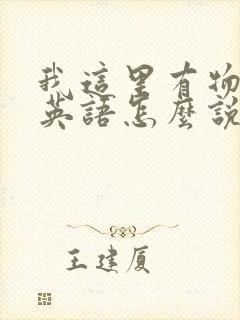 我這里有物
英語怎麼說
王建厦